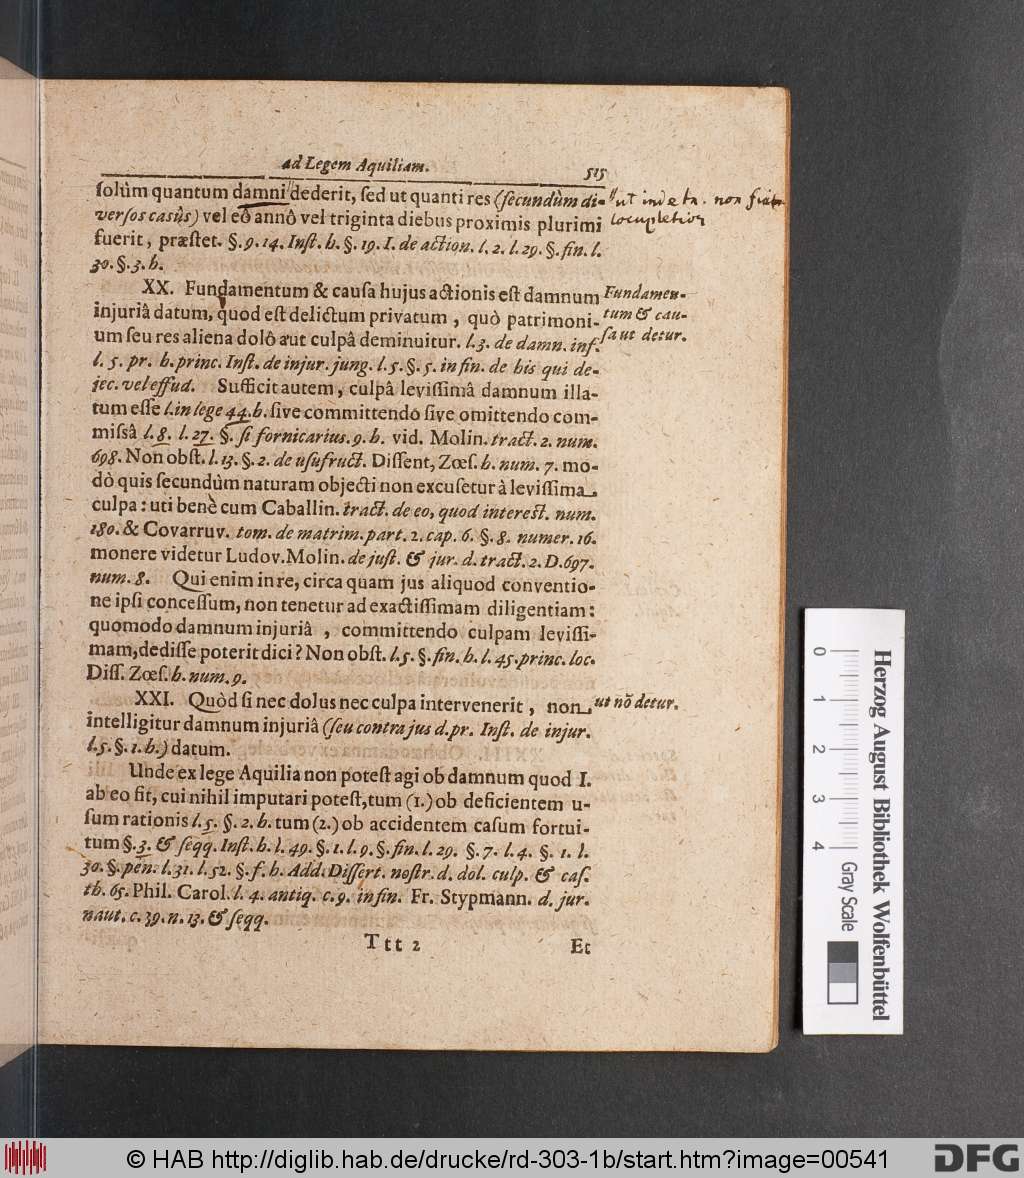 ad Legem Aquiliam. 515
ſolùm quantum damni dederit, ſed ut quanti res (ſecundùm di-
verſos casùs) vel eô annô vel triginta diebus proximis plurimi
fuerit, præſtet. §. 9. 14. Inſt. h. §. 19. I. de action. l. 2. l. 29. §. fin. l.
30. §. 3. h.
ut non
locupletior
XX. Fundamentum & cauſa hujus actionis eſt damnum
injuriâ datum, quod eſt delictum privatum, quò patrimoni-
um ſeu res aliena dolô aut culpâ deminuitur. l. 3. de damn. inf.
l. 5. pr. h. princ. Inſt. de injur. jung. l. 5. §. 5. in fin. de his qui de-
jec. vel effud. Sufficit autem, culpâ leviſſimâ damnum illa-
tum eſſe l. in lege 44. h. ſive committendo ſive omittendo com-
miſsâ l. 8. l. 27. §. ſi fornicarius. 9. h. vid. Molin. tract. 2. num.
698. Non obſt. l. 13. §. 2. de uſufruct. Diſſent, Zœſ. h. num. 7. mo-
dò quis ſecundùm naturam objecti non excuſetur à leviſſima
culpa: uti benè cum Caballin. tract. de eo, quod intereſt. num.
180. & Covarruv. tom. de matrim. part. 2. cap. 6. §. 8. numer. 16.
monere videtur Ludov. Molin. de juſt. & jur. d. tract. 2. D. 697.
num. 8. Qui enim in re, circa quam jus aliquod conventio-
ne ipſi conceſſum, non tenetur ad exactiſſimam diligentiam:
quomodo damnum injuriâ, committendo culpam leviſſi-
mam, dediſſe poterit dici? Non obſt. l. 5. §. fin. h. l. 45. princ. loc.
Diſſ. Zœſ. h. num. 9.
Fundamen-
tum & cau-
ſa ut detur.
XXI. Quòd ſi nec dolus nec culpa intervenerit, non
intelligitur damnum injuriâ (ſeu contra jus d. pr. Inſt. de injur.
l. 5. §. 1. h.) datum.
ut nō detur.
Unde ex lege Aquilia non poteſt agi ob damnum quod I.
ab eo fit, cui nihil imputari poteſt, tum (1.) ob deficientem u-
ſum rationis l. 5. §. 2. h. tum (2.) ob accidentem caſum fortui-
tum §. 3. & ſeqq. Inſt. h. l. 49. §. 1. l. 9. §. fin. l. 29. §. 7. l. 4. §. 1. l.
30. §. pen. l. 31. l. 52. §. f. h. Add. Diſſert. noſtr. d. dol. culp. & caſ.
th. 65. Phil. Carol. l. 4. antiq. c. 9. in fin. Fr. Stypmann. d. jur.
naut. c. 39. n. 13. & ſeqq.
Ttt 2 Et
0 1 2 3 4
Gray Scale
Herzog August Bibliothek Wolfenbüttel
© HAB http://diglib.hab.de/drucke/rd-303-1b/start.htm?image=00541
DFG